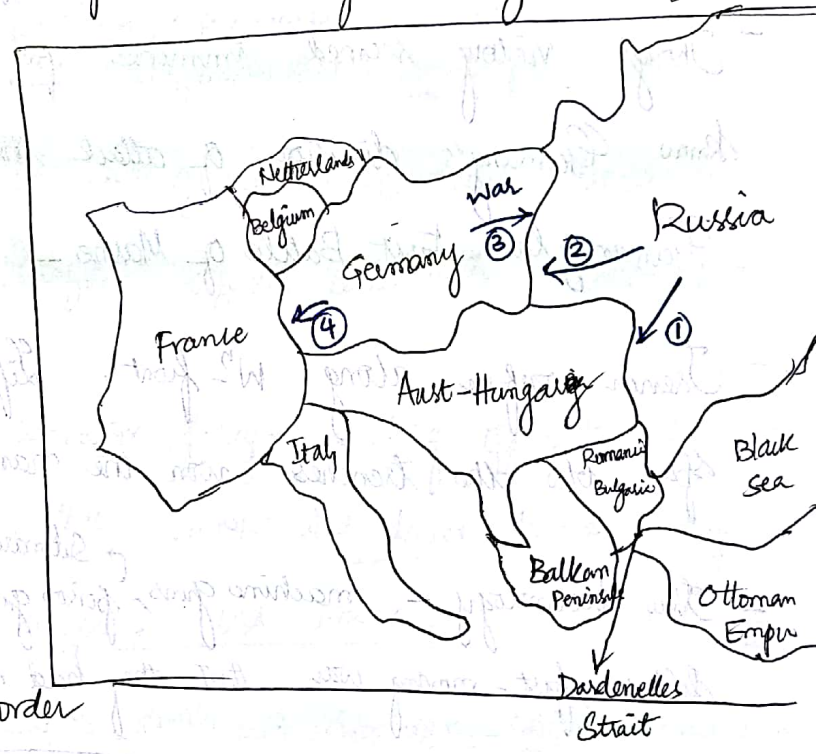 Netherlands
Belgium
War
③
Germany
②
Russia
④
①
France
Aust-Hungary
Italy
Romania
Bulgaria
Black
sea
Balkan
Peninsula
Ottoman
Empir
Dardenelles
Strait
order